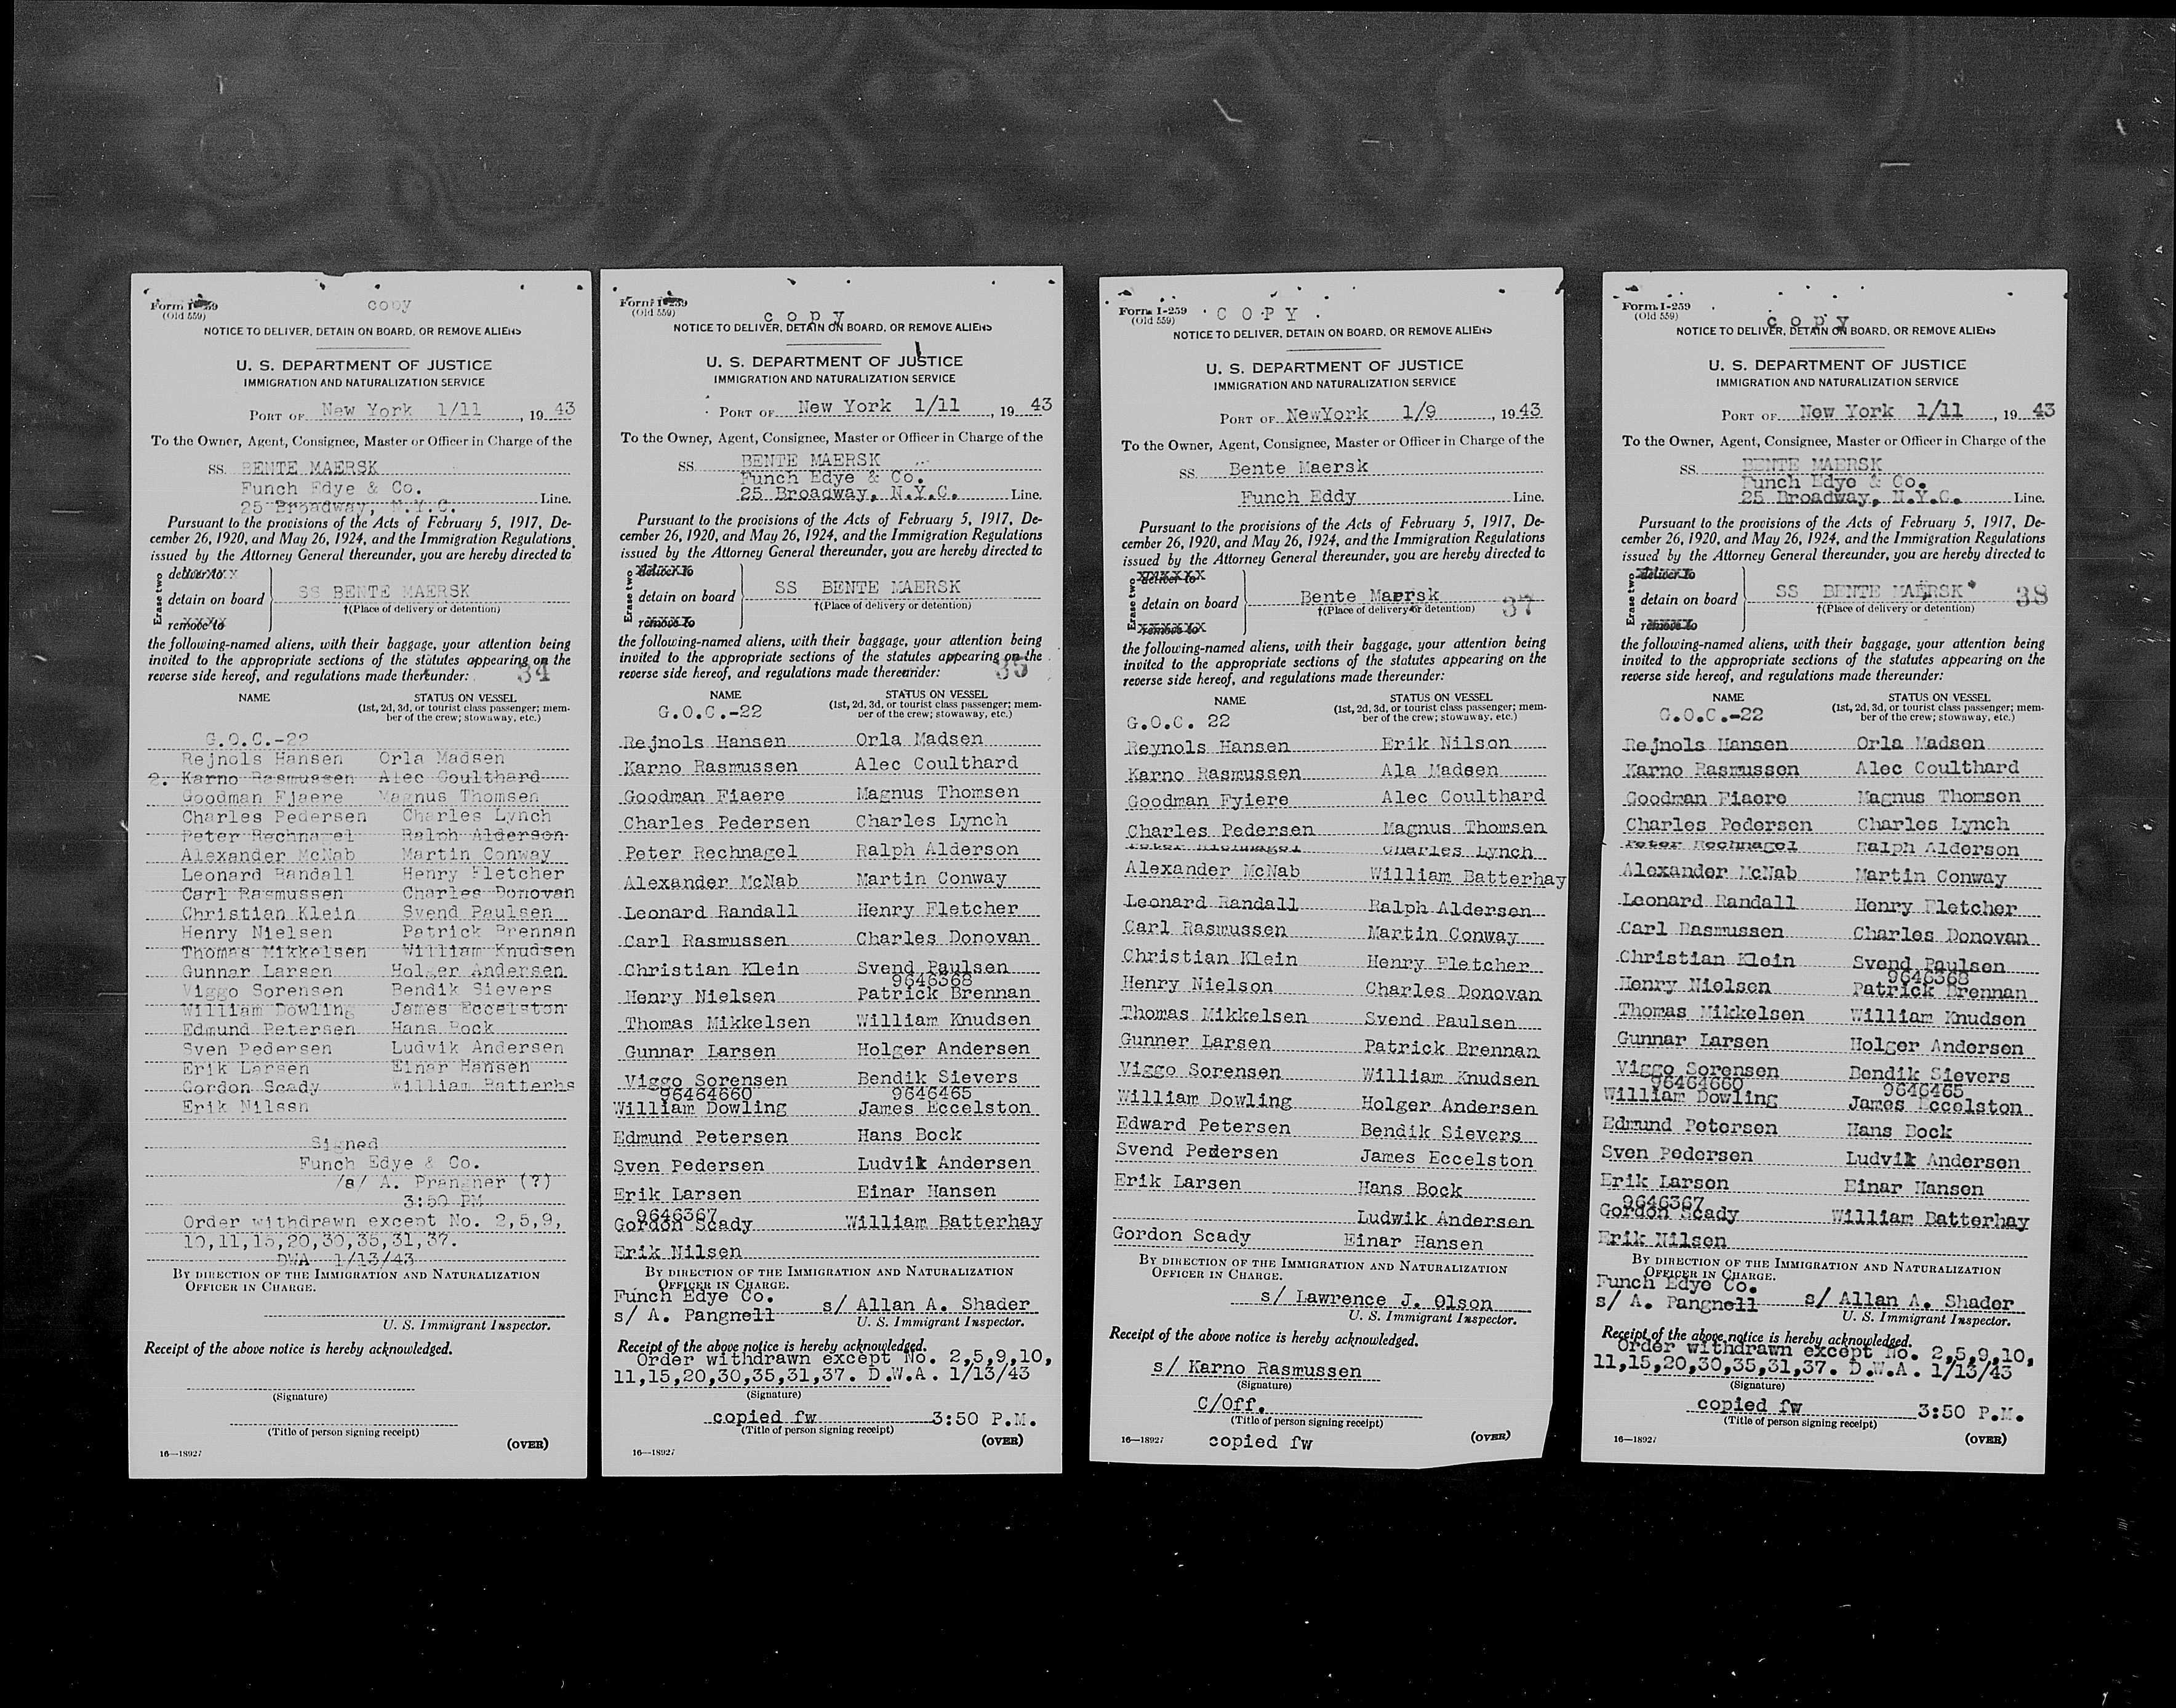 Form I-259
(Old 559)
copy
NOTICE TO DELIVER, DETAIN ON BOARD, OR REMOVE ALIENS
U. S. DEPARTMENT OF JUSTICE
IMMIGRATION AND NATURALIZATION SERVICE
PORT OF New York 1/11, 1943
To the Owner, Agent, Consignee, Master or Officer in Charge of the
SS. BENTE MAERSK
Funch Edye & Co.
25 Broadway, N.Y.C. Line.
Pursuant to the provisions of the Acts of February 5, 1917, De-
cember 26, 1920, and May 26, 1924, and the Immigration Regulations
issued by the Attorney General thereunder, you are hereby directed to
Erase two
deliver to
detain on board SS BENTE MAERSK
†(Place of delivery or detention)
remove to
the following-named aliens, with their baggage, your attention being
invited to the appropriate sections of the statutes appearing on the
reverse side hereof, and regulations made thereunder: 34
NAME STATUS ON VESSEL
(1st, 2d, 3d, or tourist class passenger; mem-
ber of the crew; stowaway, etc.)
G.O.C.-22
Rejnols Hansen Orla Madsen
2. Karno Rasmussen Alec Coulthard
Goodman Fjaere Magnus Thomsen
Charles Pedersen Charles Lynch
Peter Rechnagel Ralph Alderson
Alexander McNab Martin Conway
Leonard Randall Henry Fletcher
Carl Rasmussen Charles Donovan
Christian Klein Svend Paulsen
Henry Nielsen Patrick Brennan
Thomas Mikkelsen William Knudsen
Gunnar Larsen Holger Andersen
Viggo Sorensen Bendik Sievers
William Dowling James Eccelston
Edmund Petersen Hans Bock
Sven Pedersen Ludvik Andersen
Erik Larsen Einar Hansen
Gordon Scady William Batterhs
Erik Nilsen
Signed
Funch Edye & Co.
/s/ A. Prangner (?)
3:50 PM
Order withdrawn except No. 2,5,9,
10,11,15,20,30,35,31,37.
DWA 1/13/43
BY DIRECTION OF THE IMMIGRATION AND NATURALIZATION
OFFICER IN CHARGE.
U. S. Immigrant Inspector.
Receipt of the above notice is hereby acknowledged.
(Signature)
(Title of person signing receipt)
16—18927 (OVER)
Form I-259
(Old 559)
copy
NOTICE TO DELIVER, DETAIN ON BOARD, OR REMOVE ALIENS
U. S. DEPARTMENT OF JUSTICE
IMMIGRATION AND NATURALIZATION SERVICE
PORT OF New York 1/11, 1943
To the Owner, Agent, Consignee, Master or Officer in Charge of the
SS. BENTE MAERSK
Funch Edye & Co.
25 Broadway, N.Y.C. Line.
Pursuant to the provisions of the Acts of February 5, 1917, De-
cember 26, 1920, and May 26, 1924, and the Immigration Regulations
issued by the Attorney General thereunder, you are hereby directed to
Erase two
deliver to
detain on board SS BENTE MAERSK
†(Place of delivery or detention)
remove to
the following-named aliens, with their baggage, your attention being
invited to the appropriate sections of the statutes appearing on the
reverse side hereof, and regulations made thereunder: 35
NAME STATUS ON VESSEL
(1st, 2d, 3d, or tourist class passenger; mem-
ber of the crew; stowaway, etc.)
G.O.C.-22
Rejnols Hansen Orla Madsen
Karno Rasmussen Alec Coulthard
Goodman Fiaere Magnus Thomsen
Charles Pedersen Charles Lynch
Peter Rechnagel Ralph Alderson
Alexander McNab Martin Conway
Leonard Randall Henry Fletcher
Carl Rasmussen Charles Donovan
Christian Klein Svend Paulsen
9646368
Henry Nielsen Patrick Brennan
Thomas Mikkelsen William Knudsen
Gunnar Larsen Holger Andersen
Viggo Sorensen Bendik Sievers
96464660 9646465
William Dowling James Eccelston
Edmund Petersen Hans Bock
Sven Pedersen Ludvik Andersen
Erik Larsen Einar Hansen
9646367
Gordon Scady William Batterhay
Erik Nilsen
BY DIRECTION OF THE IMMIGRATION AND NATURALIZATION
OFFICER IN CHARGE.
Funch Edye Co.
s/ A. Pangnell s/ Allan A. Shader
U. S. Immigrant Inspector.
Receipt of the above notice is hereby acknowledged.
Order withdrawn except No. 2,5,9,10,
11,15,20,30,35,31,37. D.W.A. 1/13/43
(Signature)
copied fw 3:50 P.M.
(Title of person signing receipt)
16—18927 (OVER)
Form I-259
(Old 559)
COPY
NOTICE TO DELIVER, DETAIN ON BOARD, OR REMOVE ALIENS
U. S. DEPARTMENT OF JUSTICE
IMMIGRATION AND NATURALIZATION SERVICE
PORT OF NewYork 1/9, 1943
To the Owner, Agent, Consignee, Master or Officer in Charge of the
SS. Bente Maersk
Funch Eddy Line.
Pursuant to the provisions of the Acts of February 5, 1917, De-
cember 26, 1920, and May 26, 1924, and the Immigration Regulations
issued by the Attorney General thereunder, you are hereby directed to
Erase two
deliver to
detain on board Bente Maersk
†(Place of delivery or detention) 37
remove to
the following-named aliens, with their baggage, your attention being
invited to the appropriate sections of the statutes appearing on the
reverse side hereof, and regulations made thereunder:
NAME STATUS ON VESSEL
(1st, 2d, 3d, or tourist class passenger; mem-
ber of the crew; stowaway, etc.)
G.O.C. 22
Reynols Hansen Erik Nilson
Karno Rasmussen Ala Madsen
Goodman Fyiere Alec Coulthard
Charles Pedersen Magnus Thomsen
Peter Richnagel Charles Lynch
Alexander McNab William Batterhay
Leonard Randall Ralph Aldersen
Carl Rasmussen Martin Conway
Christian Klein Henry Fletcher
Henry Nielson Charles Donovan
Thomas Mikkelsen Svend Paulsen
Gunner Larsen Patrick Brennan
Viggo Sorensen William Knudsen
William Dowling Holger Andersen
Edward Petersen Bendik Sievers
Svend Pedersen James Eccelston
Erik Larsen Hans Bock
Ludwik Andersen
Gordon Scady Einar Hansen
BY DIRECTION OF THE IMMIGRATION AND NATURALIZATION
OFFICER IN CHARGE.
s/ Lawrence J. Olson
U. S. Immigrant Inspector.
Receipt of the above notice is hereby acknowledged.
s/ Karno Rasmussen
(Signature)
C/Off.
(Title of person signing receipt)
16—18927 copied fw (OVER)
Form I-259
(Old 559)
copy
NOTICE TO DELIVER, DETAIN ON BOARD, OR REMOVE ALIENS
U. S. DEPARTMENT OF JUSTICE
IMMIGRATION AND NATURALIZATION SERVICE
PORT OF New York 1/11, 1943
To the Owner, Agent, Consignee, Master or Officer in Charge of the
SS. BENTE MAERSK
Funch Edye & Co.
25 Broadway, N.Y.C. Line.
Pursuant to the provisions of the Acts of February 5, 1917, De-
cember 26, 1920, and May 26, 1924, and the Immigration Regulations
issued by the Attorney General thereunder, you are hereby directed to
Erase two
deliver to
detain on board SS BENTE MAERSK 38
†(Place of delivery or detention)
remove to
the following-named aliens, with their baggage, your attention being
invited to the appropriate sections of the statutes appearing on the
reverse side hereof, and regulations made thereunder:
NAME STATUS ON VESSEL
(1st, 2d, 3d, or tourist class passenger; mem-
ber of the crew; stowaway, etc.)
G.O.C.-22
Rejnols Hansen Orla Madsen
Karno Rasmussen Alec Coulthard
Goodman Fiaere Magnus Thomsen
Charles Pedersen Charles Lynch
Peter Rechnagel Ralph Alderson
Alexander McNab Martin Conway
Leonard Randall Henry Fletcher
Carl Rasmussen Charles Donovan
Christian Klein Svend Paulsen
9646368
Henry Nielsen Patrick Brennan
Thomas Mikkelsen William Knudsen
Gunnar Larsen Holger Andersen
Viggo Sorensen Bendik Sievers
96464660 9646465
William Dowling James Eccelston
Edmund Petersen Hans Bock
Sven Pedersen Ludvik Andersen
Erik Larson Einar Hansen
9646367
Gordon Scady William Batterhay
Erik Nilsen
BY DIRECTION OF THE IMMIGRATION AND NATURALIZATION
OFFICER IN CHARGE.
Funch Edye Co.
s/ A. Pangnell s/ Allan A. Shader
U. S. Immigrant Inspector.
Receipt of the above notice is hereby acknowledged.
Order withdrawn except No. 2,5,9,10,
11,15,20,30,35,31,37. D.W.A. 1/13/43
(Signature)
copied fw 3:50 P.M.
(Title of person signing receipt)
16—18927 (OVER)